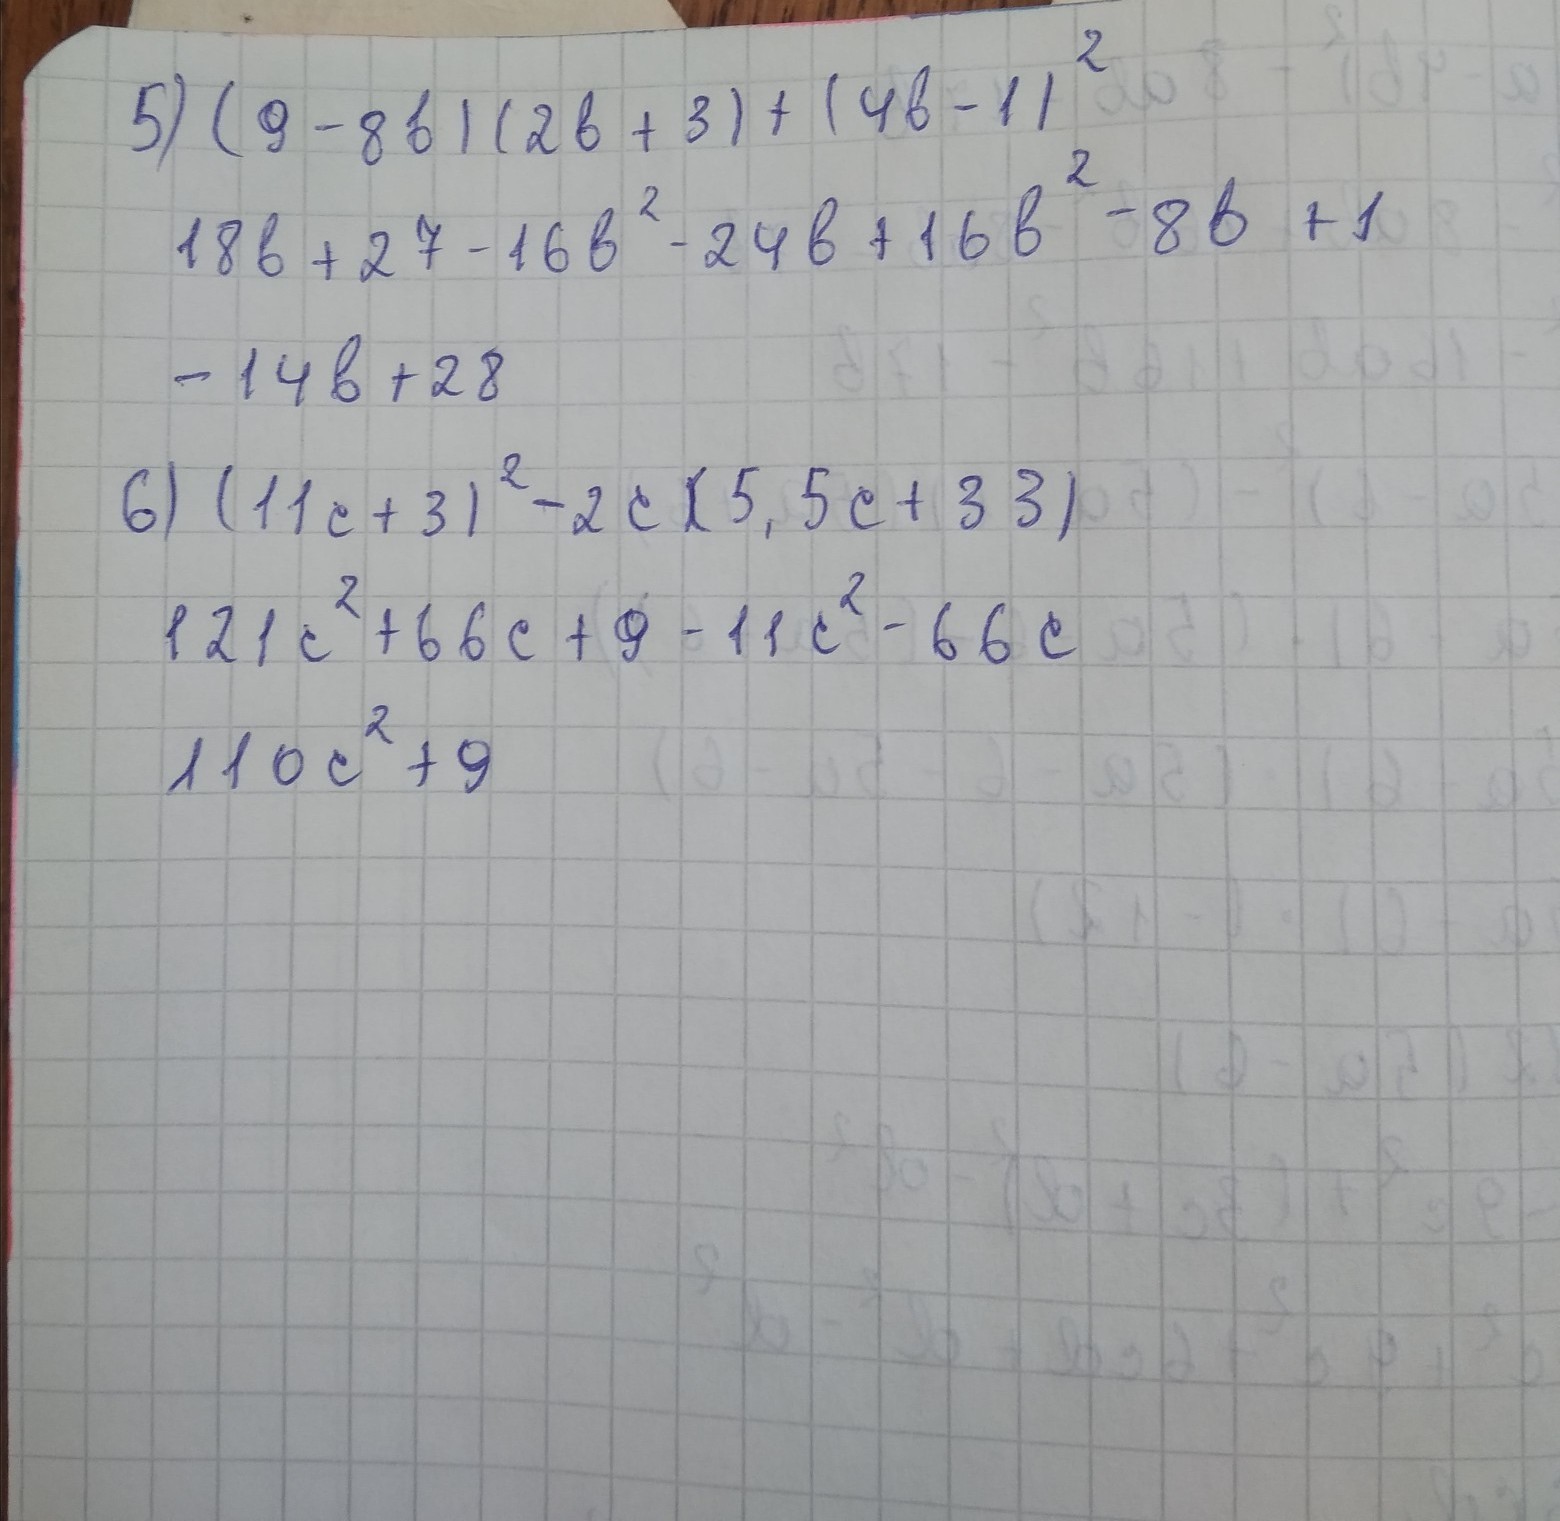 5) (9-8b)(2b+3)+(4b-1)²
18b+27-16b²-24b+16b²-8b+1
-14b+28
6) (11c+3)²-2c(5,5c+33)
121c²+66c+9-11c²-66c
110c²+9